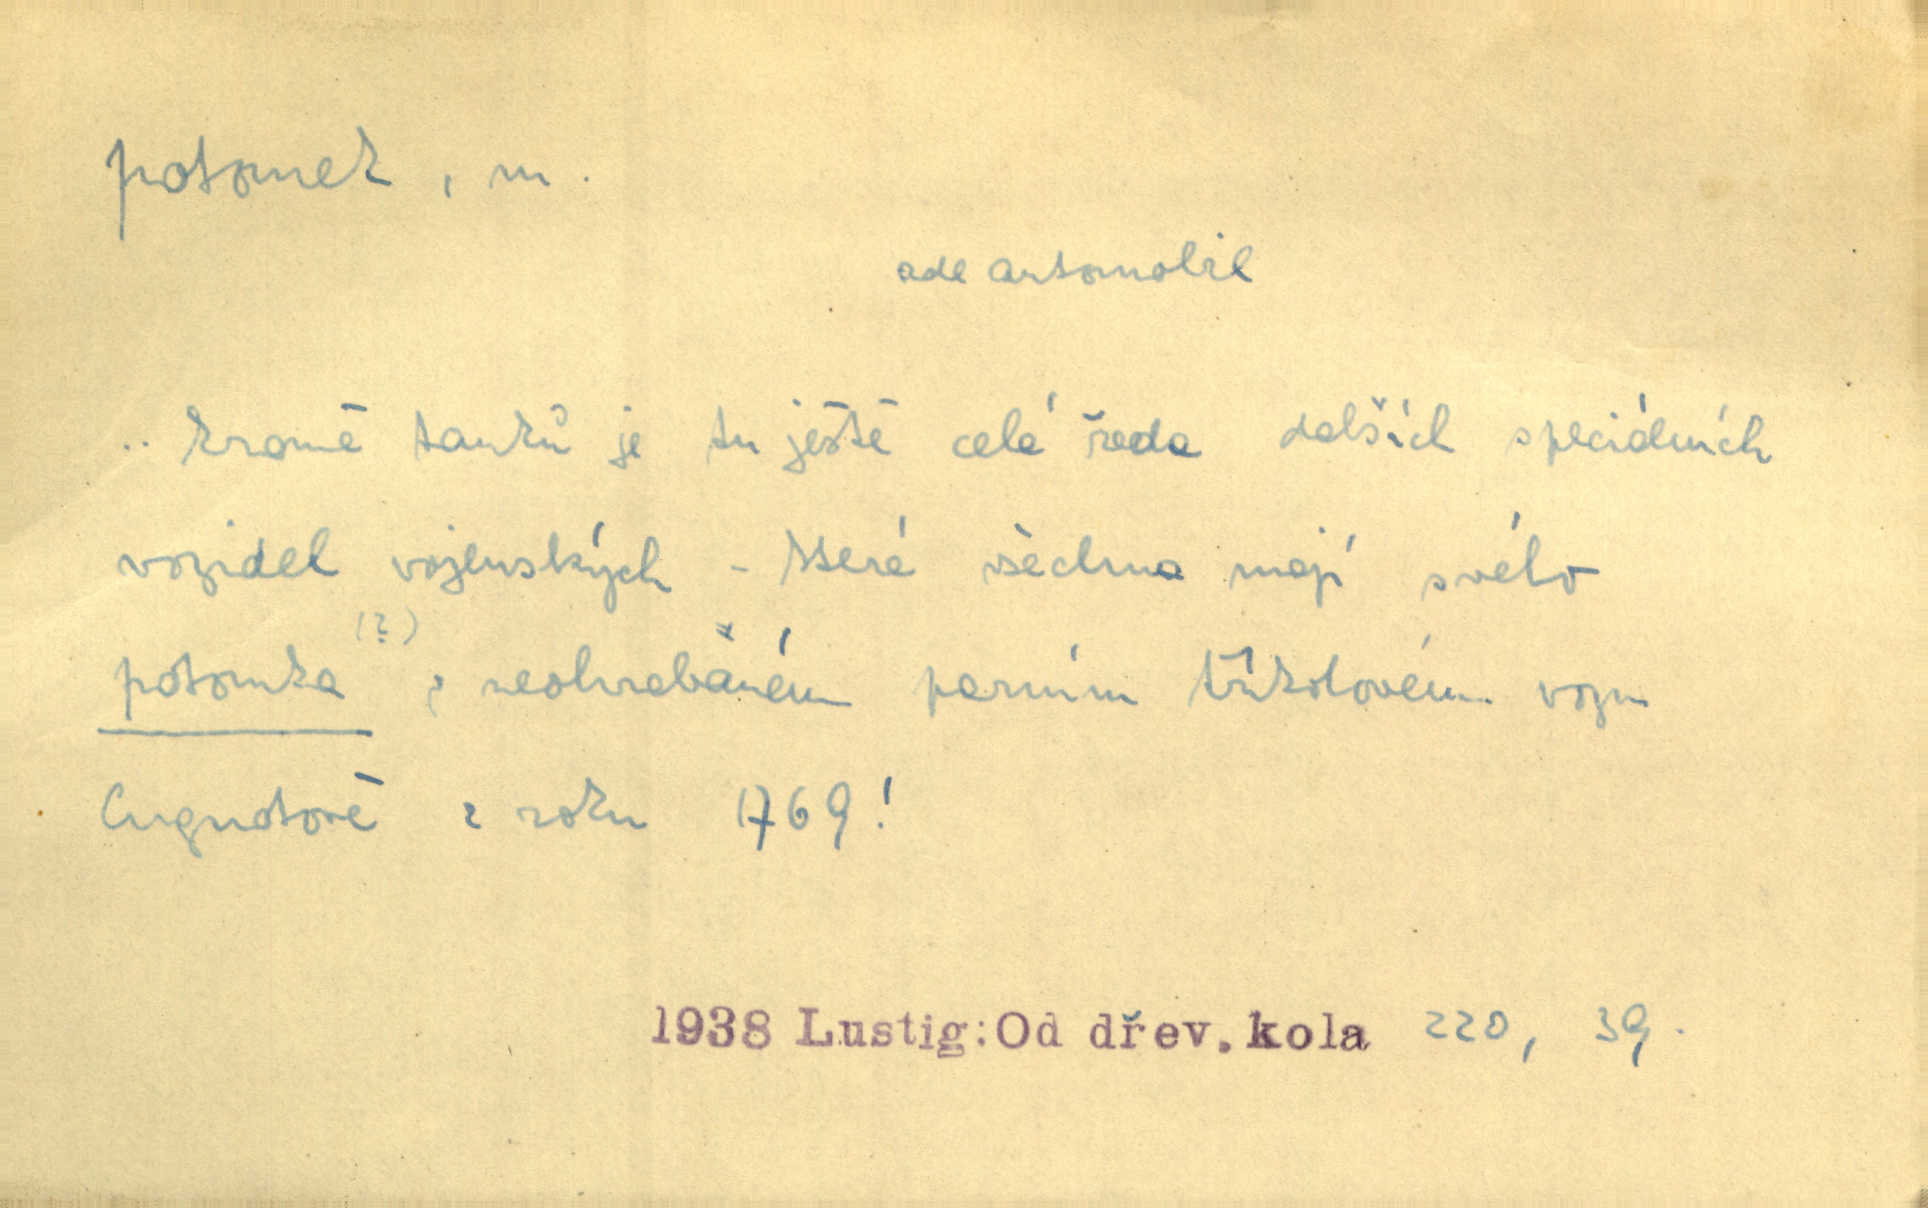 potomek, m.
zde automobil
.. kromě tanků je tu ještě celá řada dalších speciálních
vozidel vojenských - která všechna mají svého
potomka (?) v neohrabaném parním tříkolovém vozu
Cugnotově z roku 1769!
1938 Lustig: Od dřev. kola 220, 39.